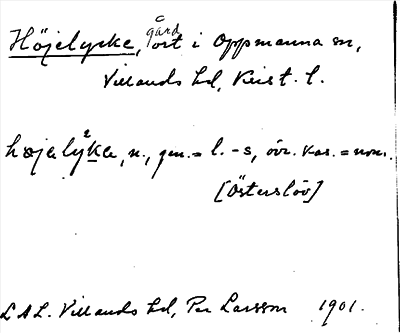 Höjelycke, gård ort i Oppmanna sn,
Villands hd, Krist. l.
højelyk̲e, n., gen. = l. -s, övr. kas. = nom.
[Österslöv]
LAL. Villands hd, Per Larsson 1901.